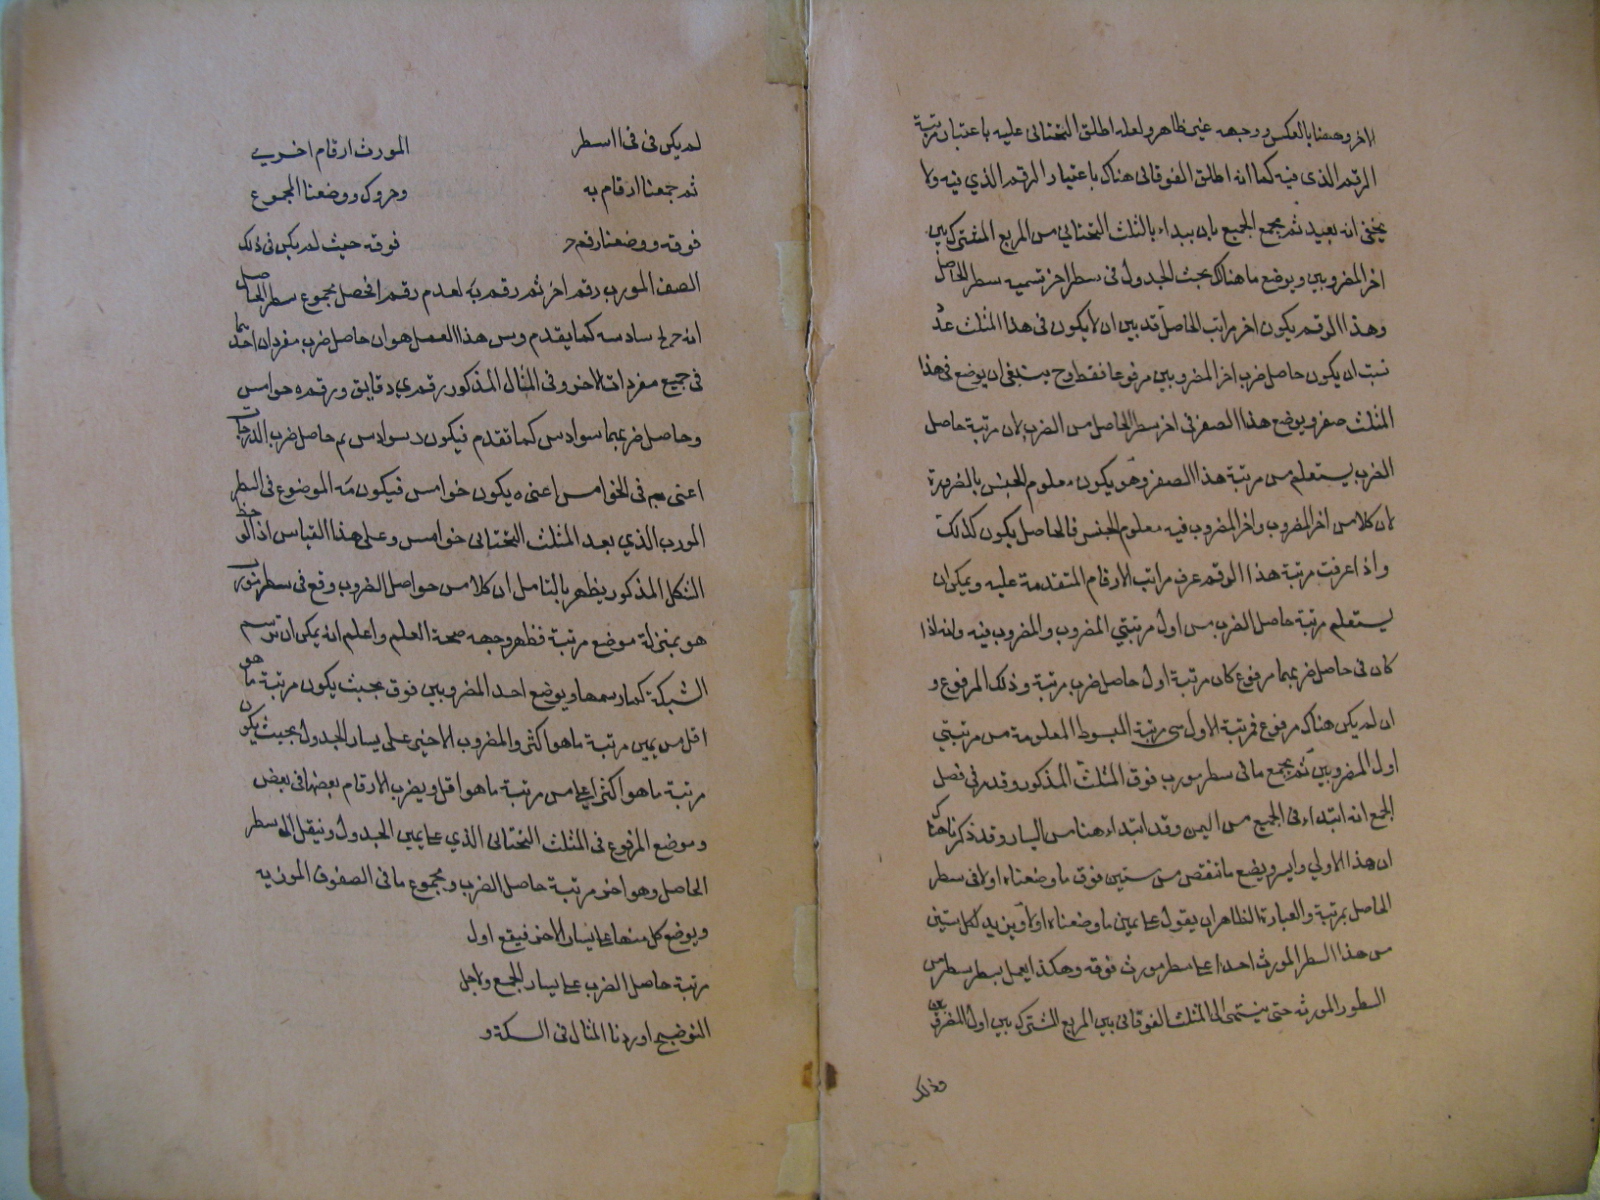 الاخر وههنا بالعكس ووجهه غير ظاهر ولعله اطلق التحتانى عليه باعتبار مرتبة
الرقم الذى فيه كما انه اطلق الفوقانى هناك باعتبار الرقم الذي فيه ولا
يخفى انه بعيد ثم يجمع الجميع بان يبداء بالثلث التحتانى من المربع المشترك بين
اخر المضروبين ويوضع ما هناك بحث الجدول فى سطر اخر تسميه سطر الحاصل
وهذا الرقم يكون اخر مراتب الحاصل قد بين ان لا يكون فى هذا المثلث عدد
نبت ان يكون حاصل ضرب اخر المضروبين مرفوعا فقط وح ينبغى ان يوضع فى هذا
المثلث صفر ويوضع هذا الصفر فى اخر سطر الحاصل من الضرب لان مرتبة حاصل
الضرب يستعلم من مرتبة هذا الصفر وهو يكون معلوم الجنس بالضرورة
لان كلا من اخر المضروب واخر المضروب فيه معلوم الجنس فالحاصل يكون كذلك
واذا عرفت مرتبة هذا الرقم عرف مراتب الارقام المتقدمة عليه ويمكن ان
يستعلم مرتبة حاصل الضرب من اول مرتبتي المضروب والمضروب فيه وانه اذا
كان فى حاصل ضربهما مرفوع كان مرتبة اول حاصل ضرب مرتبة وذلك المرفوع و
ان لم يكن هناك مرفوع فمرتبة الاول سى مرتبة المبسوط المعلومة من مرتبتي
اول المضروبين ثم يجمع ما فى سطر مورب فوق المثلث المذكور وقد مر فى فصل
الجمع انه ابتداء فى الجمع من اليمن وقد ابتداء هنا من اليسار وقد ذكرنا هناك
ان هذا الاولي وايسر ويضع ما تنقص من ستين فوق ما وضعناه اولا فى سطر
الحاصل بمرتبة والعبارة الظاهر ان يقول على يمين ما وضعناه اولا ويزيد لكل ستين
من هذا السطر المورث احدا على سطر مورث فوقه وهكذا يعمل بسطر سطر من
السطور المورثه حتى ينتهى الى المثلث الفوقانى بين المربع المشترك بين اول المضروبين
وذلك
لم يكن فى فى ا اسطر المورث ارقام اخرى
ثم جمعنا ارقام به ووضعنا المجموع
فوقه ووضعنا رقم فوقه حيث لم يكن فى ذلك
الصف المورب رقم اخر ثم رقم لعدم رقم اخر مجموع سطر الحاصل
انه سادسه كما يقدم وبين هذا العمل هو ان حاصل ضرب مفردات احدهما
فى جميع مفردات الاخر وفى المثال المذكور رقم دقايق ورقم ه خوامس
وحاصل ضربهما سوادس كما تقدم فيكون د سوادس ثم حاصل ضرب الدرجات
اعنى فى الخوامس اعنى ه يكون خوامس فيكون مه الموضوع فى السطر
المورب الذي بعد المثلث التحتانى خوامس وعلى هذا القياس اذ
الشكل المذكور يظهر بالتامل ان كلا من حواصل الضروب وقع فى سطر مورب
هو بمنزلة موضع مرتبة فظهر وجهه صحة العلم واعلم انه يمكن ان ترسم
الشبكة كما رسمها ويوضع احد المضروبين فوق بحيث يكون مرتبة ما هو
اقل من يمين مرتبة ما هو اكثر والمضروب الاخر على يسار الجدول بحيث يكون
مرتبة ما هو اكثر اعلى من مرتبة ما هو اقل ويضرب الارقام بعضها فى بعض
وموضع المرفوع فى المثلث التحتانى الذي على يمين الجدول وينقل الى سطر
الحاصل وهو اخر مرتبة حاصل الضرب ومجموع ما فى الصفوف
ويوضع كل منها على يسار الاخر فيقع اول
مرتبة حاصل الضرب على يسار الجمع ولاجل
التوضيح اوردنا المثال فى السكة و